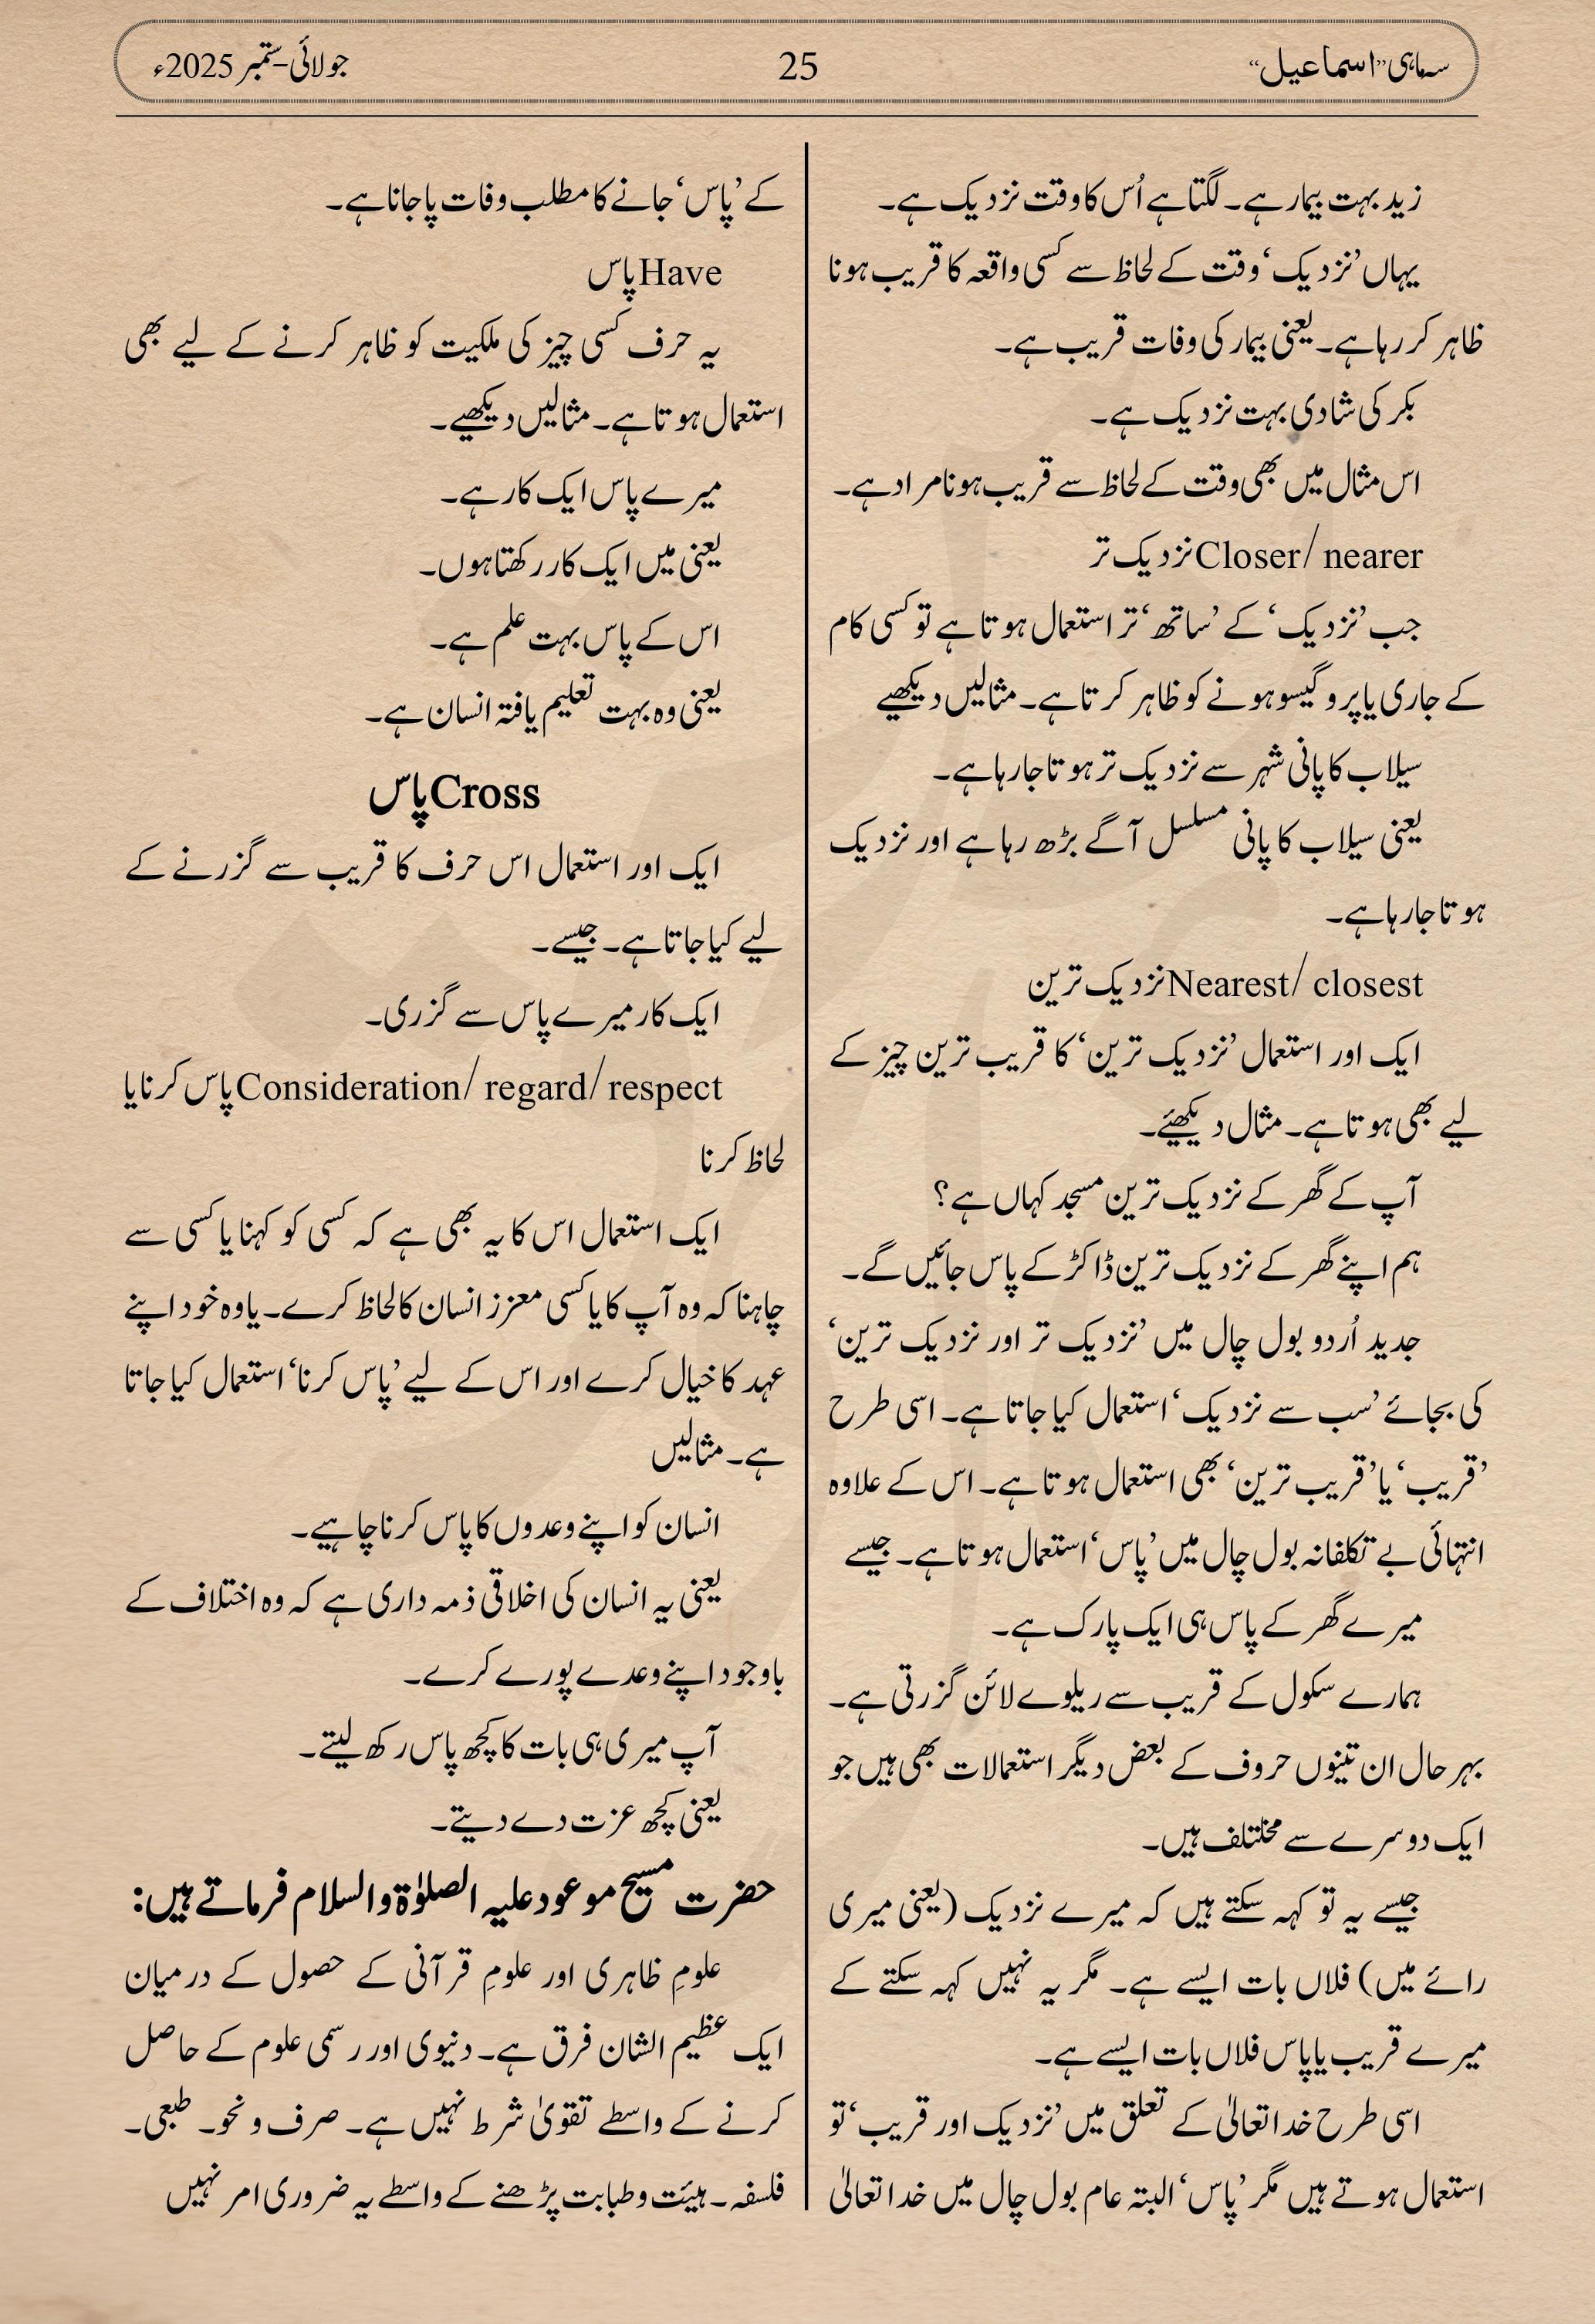 سہ ماہی ”اسماعیل“
25
جولائی-ستمبر 2025ء
زید بہت بیمار ہے۔ لگتا ہے اُس کا وقت نزدیک ہے۔
یہاں ’نزدیک‘ وقت کے لحاظ سے کسی واقعہ کا قریب ہونا
ظاہر کر رہا ہے۔ یعنی بیمار کی وفات قریب ہے۔
بکر کی شادی بہت نزدیک ہے۔
اس مثال میں بھی وقت کے لحاظ سے قریب ہونا مراد ہے۔
Closer/ nearer نزدیک تر
جب ’نزدیک‘ کے ’ساتھ‘ تر استعمال ہوتا ہے تو کسی کام
کے جاری یا پروگیسو ہونے کو ظاہر کرتا ہے۔ مثالیں دیکھیے
سیلاب کا پانی شہر سے نزدیک تر ہوتا جا رہا ہے۔
یعنی سیلاب کا پانی مسلسل آگے بڑھ رہا ہے اور نزدیک
ہوتا جا رہا ہے۔
Nearest/ closest نزدیک ترین
ایک اور استعمال ’نزدیک ترین‘ کا قریب ترین چیز کے
لیے بھی ہوتا ہے۔ مثال دیکھیئے۔
آپ کے گھر کے نزدیک ترین مسجد کہاں ہے؟
ہم اپنے گھر کے نزدیک ترین ڈاکڑ کے پاس جائیں گے۔
جدید اُردو بول چال میں ’نزدیک تر اور نزدیک ترین‘
کی بجائے ’سب سے نزدیک‘ استعمال کیا جاتا ہے۔ اسی طرح
’قریب‘ یا ’قریب ترین‘ بھی استعمال ہوتا ہے۔ اس کے علاوہ
انتہائی بے تکلفانہ بول چال میں ’پاس‘ استعمال ہوتا ہے۔ جیسے
میرے گھر کے پاس ہی ایک پارک ہے۔
ہمارے سکول کے قریب سے ریلوے لائن گزرتی ہے۔
بہر حال ان تینوں حروف کے بعض دیگر استعمالات بھی ہیں جو
ایک دوسرے سے مختلف ہیں۔
جیسے یہ تو کہہ سکتے ہیں کہ میرے نزدیک (یعنی میری
رائے میں) فلاں بات ایسے ہے۔ مگر یہ نہیں کہہ سکتے کے
میرے قریب یا پاس فلاں بات ایسے ہے۔
اسی طرح خدا تعالیٰ کے تعلق میں ’نزدیک اور قریب‘ تو
استعمال ہوتے ہیں مگر ’پاس‘ البتہ عام بول چال میں خدا تعالیٰ
کے ’پاس‘ جانے کا مطلب وفات پا جانا ہے۔
Have پاس
یہ حرف کسی چیز کی ملکیت کو ظاہر کرنے کے لیے بھی
استعمال ہوتا ہے۔ مثالیں دیکھیے۔
میرے پاس ایک کار ہے۔
یعنی میں ایک کار رکھتا ہوں۔
اس کے پاس بہت علم ہے۔
یعنی وہ بہت تعلیم یافتہ انسان ہے۔
Cross پاس
ایک اور استعمال اس حرف کا قریب سے گزرنے کے
لیے کیا جاتا ہے۔ جیسے۔
ایک کار میرے پاس سے گزری۔
Consideration/ regard/ respect پاس کرنا یا
لحاظ کرنا
ایک استعمال اس کا یہ بھی ہے کہ کسی کو کہنا یا کسی سے
چاہنا کہ وہ آپ کا یا کسی معزز انسان کا لحاظ کرے۔ یا وہ خود اپنے
عہد کا خیال کرے اور اس کے لیے ’پاس کرنا‘ استعمال کیا جاتا
ہے۔ مثالیں
انسان کو اپنے وعدوں کا پاس کرنا چاہیے۔
یعنی یہ انسان کی اخلاقی ذمہ داری ہے کہ وہ اختلاف کے
باوجود اپنے وعدے پورے کرے۔
آپ میری ہی بات کا کچھ پاس رکھ لیتے۔
یعنی کچھ عزت دے دیتے۔
حضرت مسیح موعود علیہ الصلوٰۃ والسلام فرماتے ہیں:
علومِ ظاہری اور علومِ قرآنی کے حصول کے درمیان
ایک عظیم الشان فرق ہے۔ دنیوی اور رسمی علوم کے حاصل
کرنے کے واسطے تقویٰ شرط نہیں ہے۔ صرف و نحو۔ طبعی۔
فلسفہ۔ ہیئت و طبابت پڑھنے کے واسطے یہ ضروری امر نہیں